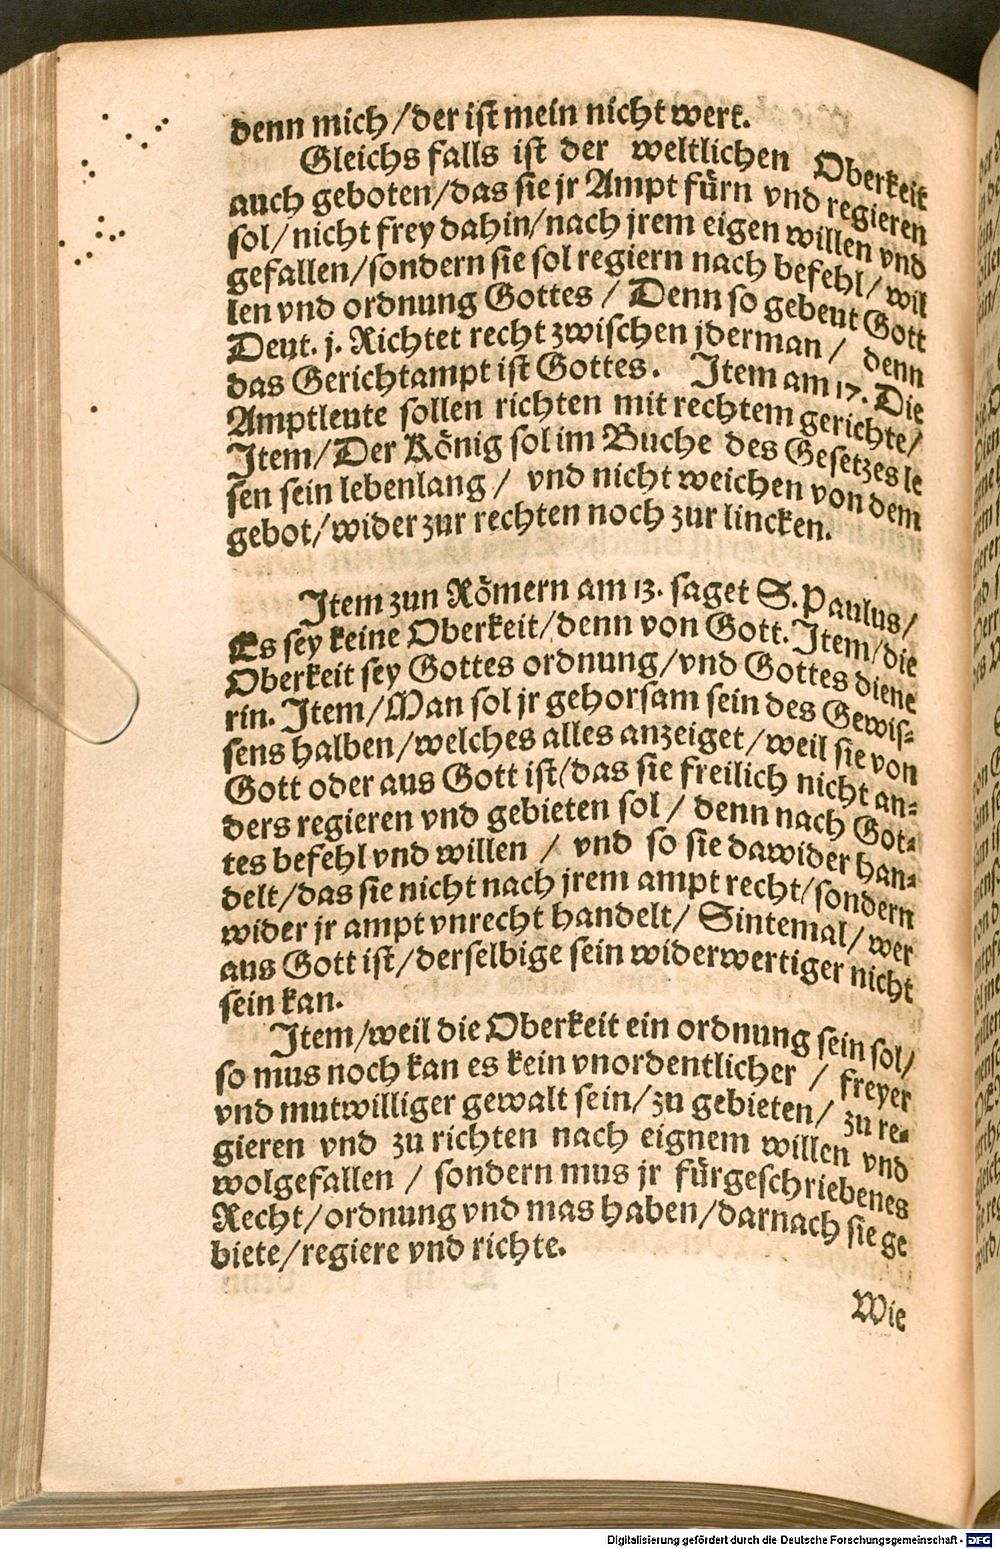 denn mich/der ist mein nicht wert.
Gleichs falls ist der weltlichen Oberkeit
auch geboten/das sie jr Ampt fürn vnd regieren
sol/nicht frey dahin/nach jrem eigen willen vnd
gefallen/sondern sie sol regiern nach befehl/wil
len vnd ordnung Gottes/Denn so gebeut Gott
Deut. j. Richtet recht zwischen jderman/denn
das Gerichtampt ist Gottes. Item am 17. Die
Amptleute sollen richten mit rechtem gerichte/
Item/Der König sol im Buche des Gesetzes le
sen sein lebenlang/vnd nicht weichen von dem
gebot/wider zur rechten noch zur lincken.
Item zun Römern am 13. saget S. Paulus/
Es sey keine Oberkeit/denn von Gott. Item/die
Oberkeit sey Gottes ordnung/vnd Gottes diene
rin. Item/Man sol jr gehorsam sein des Gewis-
sens halben/welches alles anzeiget/weil sie von
Gott oder aus Gott ist/das sie freilich nicht an-
ders regieren vnd gebieten sol/denn nach Got-
tes befehl vnd willen/vnd so sie dawider han-
delt/das sie nicht nach jrem ampt recht/sondern
wider jr ampt vnrecht handelt/Sintemal/wer
aus Gott ist/derselbige sein widerwertiger nicht
sein kan.
Item/weil die Oberkeit ein ordnung sein sol/
so mus noch kan es kein vnordentlicher/freyer
vnd mutwilliger gewalt sein/zu gebieten/zu re-
gieren vnd zu richten nach eignem willen vnd
wolgefallen/sondern mus jr fürgeschriebenes
Recht/ordnung vnd mas haben/darnach sie ge
biete/regiere vnd richte.
Wie
Digitalisierung gefördert durch die Deutsche Forschungsgemeinschaft - DFG